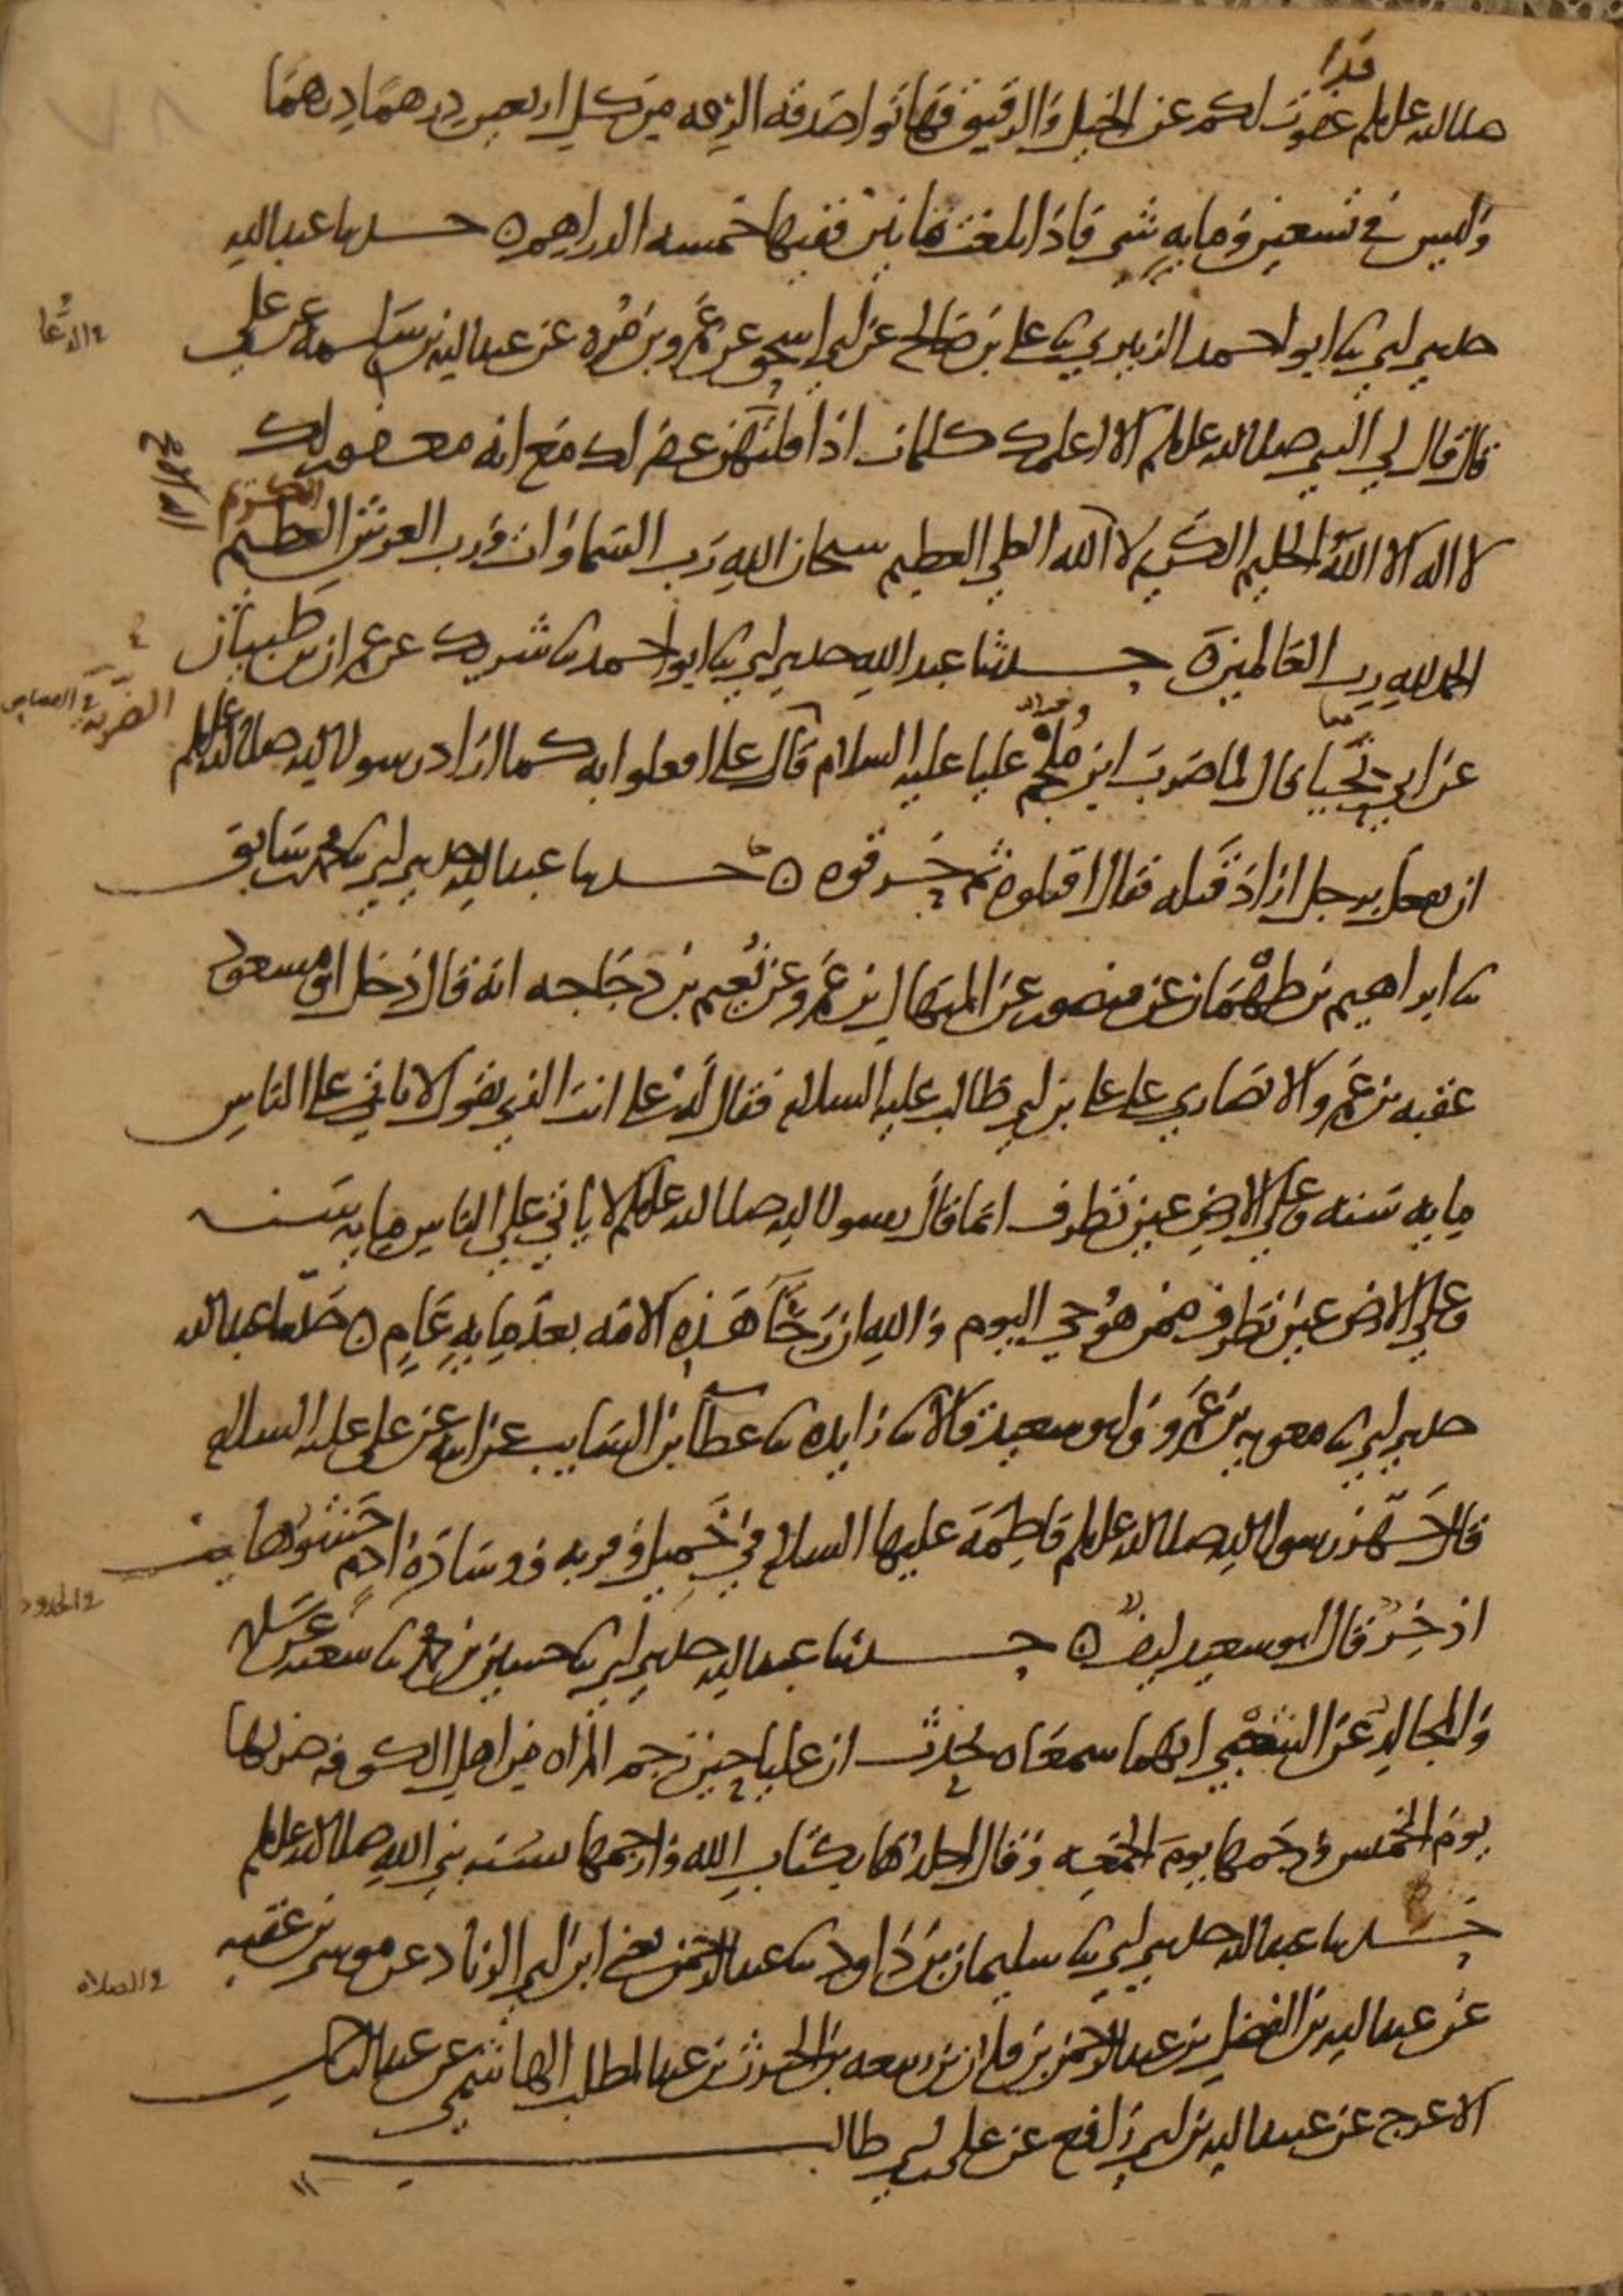 قد
صلى الله عليه وسلم عفوت لكم عن الخيل والرقيق فهاتوا صدقه الرقه من كل اربعين درهما درهما
وليس في تسعين ومايه شي فاذا بلغت مايتين ففيها خمسه الدراهم ه حدثنا عبد الله
حدثني ابي ثنا ابو احمد الزبيري ثنا علي بن صالح عن ابي اسحق عن عمرو بن مره عن عبد الله بن سلمه عن علي
في الدعا
قال قال لي النبي صلى الله عليه وسلم الا اعلمك كلمات اذا قلتهن غفر لك مع انه مغفور لك
لا اله الا الله الحليم الكريم لا اله الا الله العلي العظيم سبحان الله رب السماوات ورب العرش العظيم
الكريم
الحمد لله رب العالمين ه حدثنا عبد الله حدثني ابي ثنا ابو احمد ثنا شريك عن عمران بن ظبيان
في القصاص
عن ابي تحيا قال لما ضرب ابن ملجم عليا عليه السلام قال علي افعلوا به كما اراد رسول الله صلى الله عليه وسلم
ان يفعل برجل اراد قتله فقال اقتلوه ثم حرقوه ه حدثنا عبد الله حدثني ابي ثنا محمد بن سابق
ثنا ابراهيم بن طهمان عن منصور عن المنهال بن عمرو عن نعيم بن دجاجه انه قال دخل ابو مسعود
عقبه بن عمرو الانصاري على علي بن ابي طالب عليه السلام فقال له علي انت الذي تقول لا ياتي على الناس
مايه سنه وعلى الارض عين تطرف انما قال رسول الله صلى الله عليه وسلم لا ياتي على الناس مايه سنه
وعلى الارض عين تطرف ممن هو حي اليوم والله ان رخا هذه الامه بعد مايه عام ه حدثنا عبد الله
حدثني ابي ثنا معويه بن عمرو وابو سعيد قالا ثنا زايده ثنا عطا بن السايب عن ابيه عن علي عليه السلام
قال جهز رسول الله صلى الله عليه وسلم فاطمه عليها السلام في خميل وقربه ووساده ادم حشوها ليف
اذخر قال ابو سعيد ليف ه حدثنا عبد الله حدثني ابي ثنا حسين بن محمد ثنا شعبه عن سلمه
في الحدود
والمجالد عن الشعبي انهما سمعاه يحدث ان عليا حين رجم المراه من اهل الكوفه ضربها
يوم الخميس ورجمها يوم الجمعه وقال اجلدها بكتاب الله وارجمها بسنه نبي الله صلى الله عليه وسلم
حدثنا عبد الله حدثني ابي ثنا سليمان بن داود ثنا عبد الرحمن يعني ابن ابي الزناد عن موسى بن عقبه
في الصلاه
عن عبد الله بن الفضل بن عبد الرحمن بن فلان بن ربيعه بن الحرث بن عبد المطلب الهاشمي عن عبد الرحمن
الاعرج عن عبيد الله بن ابي رافع عن علي بن ابي طالب